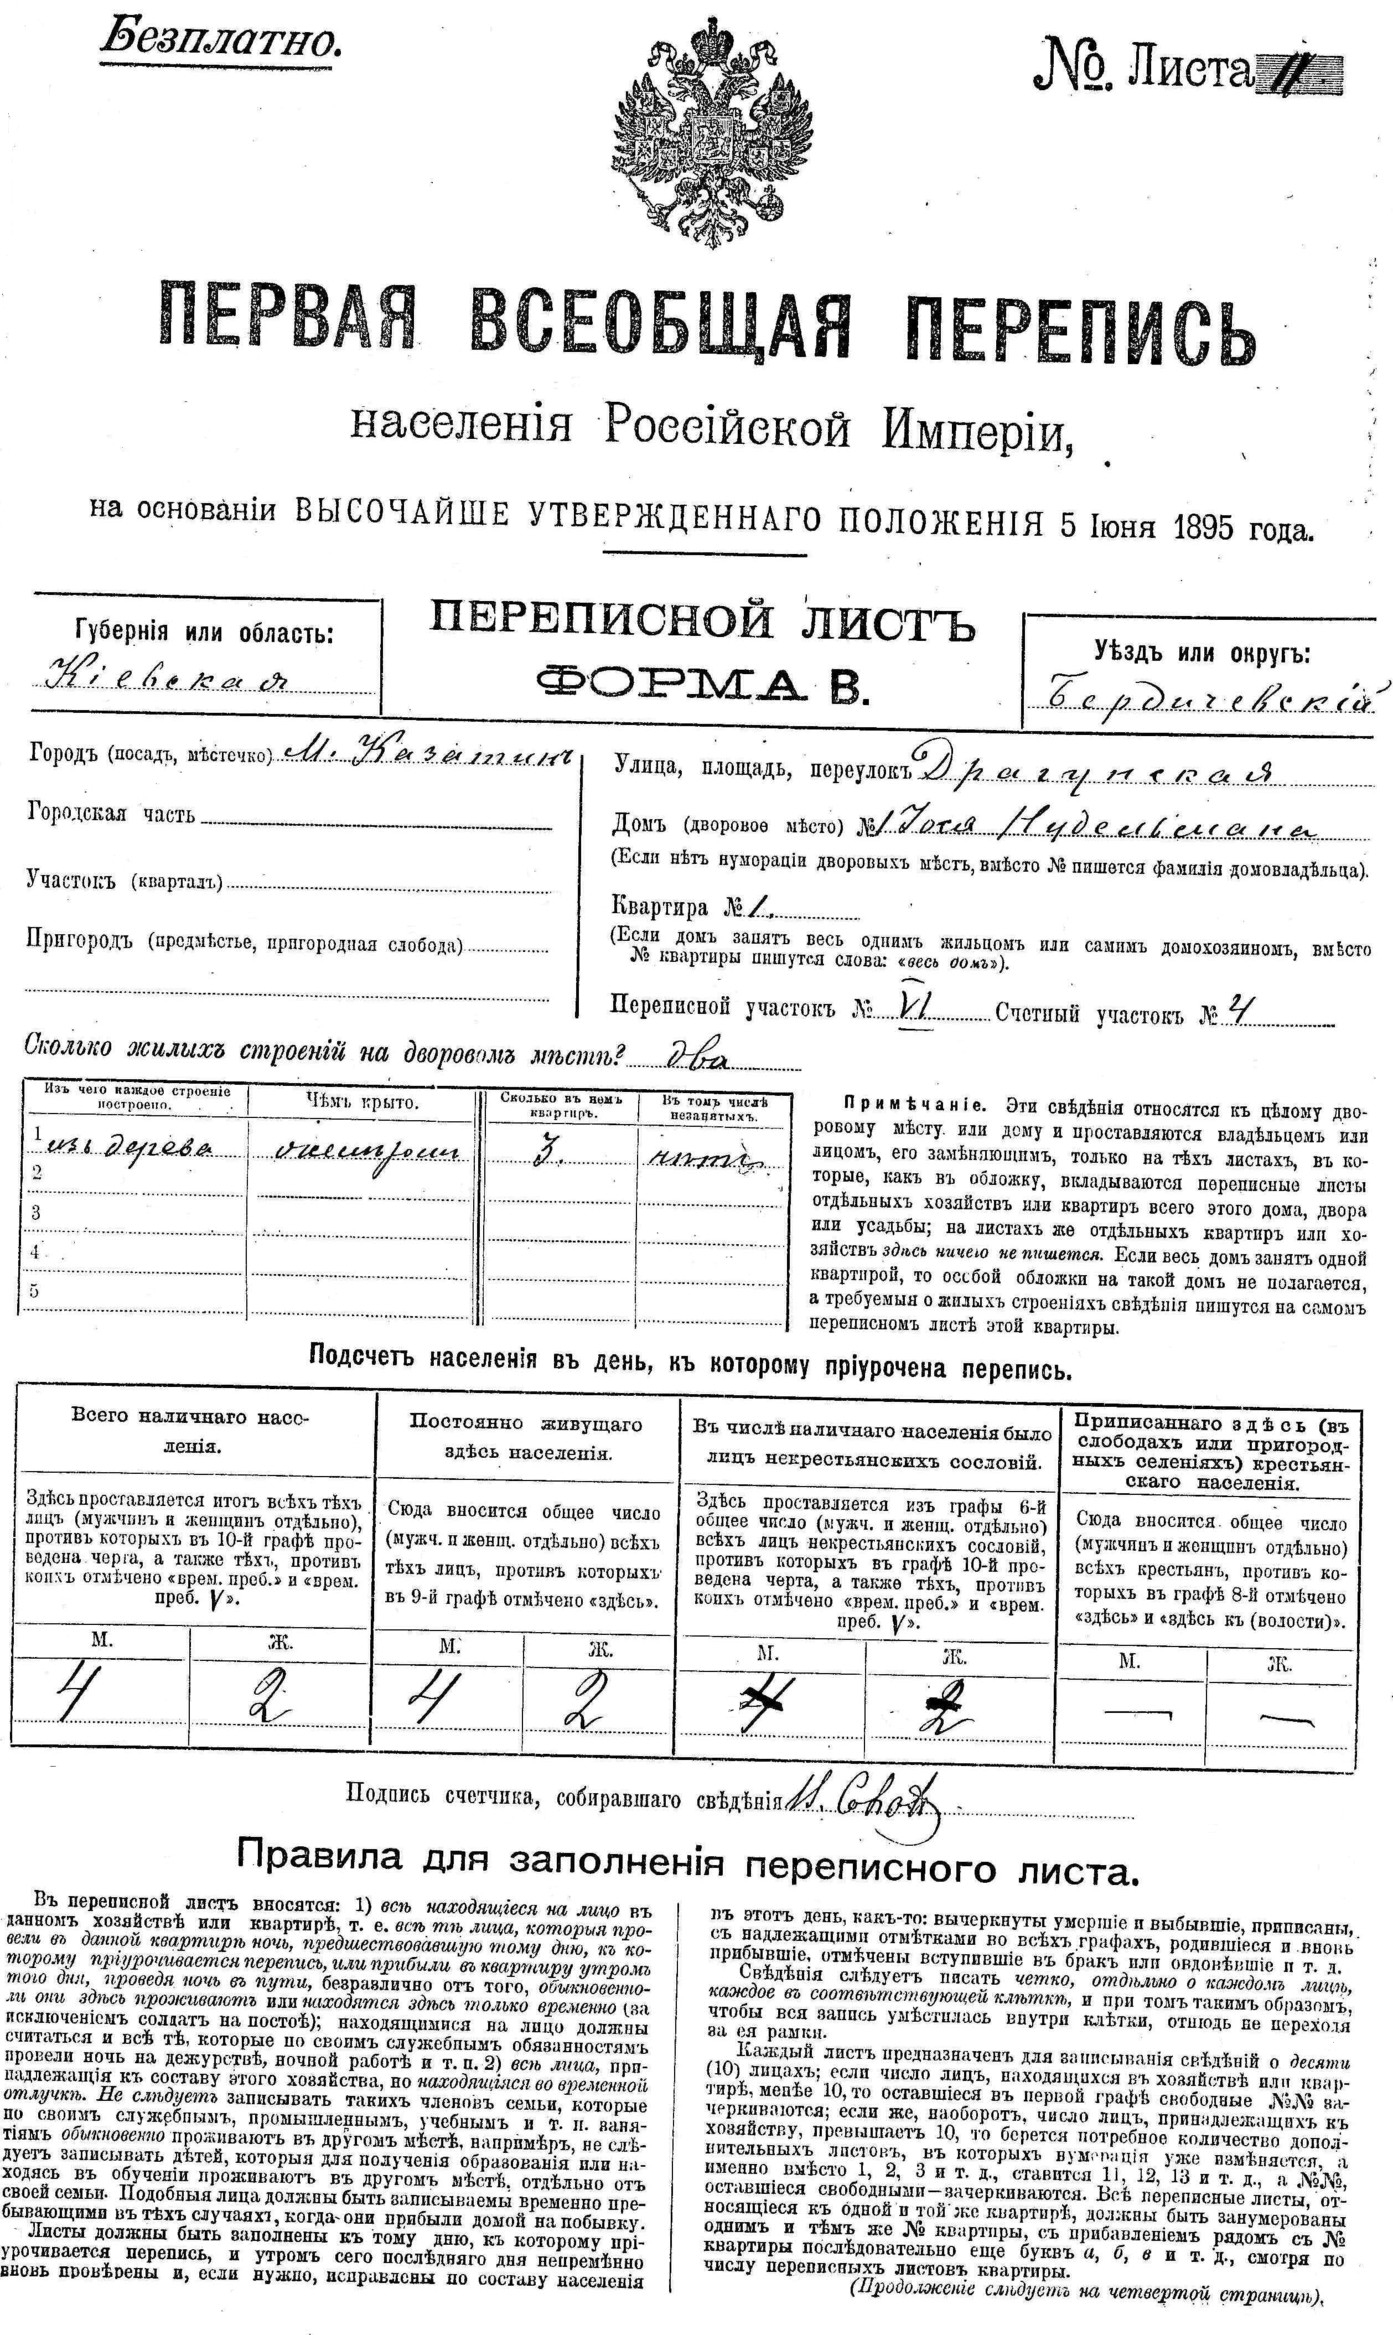 Безплатно.
№. Листа 11.
ПЕРВАЯ ВСЕОБЩАЯ ПЕРЕПИСЬ
населенія Россійской Имперіи,
на основаніи ВЫСОЧАЙШЕ УТВЕРЖДЕННАГО ПОЛОЖЕНІЯ 5 Іюня 1895 года.
Губернія или область:
Кіевская
ПЕРЕПИСНОЙ ЛИСТЪ
ФОРМА В.
Уѣздъ или округъ:
Бердичевскій
Городъ (посадъ, мѣстечко) М. Казатинъ
Городская часть
Участокъ (кварталъ)
Пригородъ (предмѣстье, пригородная слобода)
Улица, площадь, переулокъ Драгунская
Домъ (дворовое мѣсто) № Нудельмана
(Если нѣтъ нумораціи дворовыхъ мѣстъ, вмѣсто № пишется фамилія домовладѣльца).
Квартира № 1.
(Если домъ занятъ весь однимъ жильцомъ или самимъ домохозяиномъ, вмѣсто
№ квартиры пишутся слова: «весь домъ»).
Переписной участокъ № VI Счетный участокъ № 4
Сколько жилыхъ строеній на дворовомъ мѣстѣ? два
Изъ чего каждое строеніе
построено.
Чѣмъ крыто.
Сколько въ немъ
квартиръ.
Въ томъ числѣ
незанятыхъ.
1 изъ дерева 3.
2
3
4
5
Примѣчаніе. Эти свѣдѣнія относятся къ цѣлому дво-
ровому мѣсту или дому и проставляются владѣльцемъ или
лицомъ, его замѣняющимъ, только на тѣхъ листахъ, въ ко-
торые, какъ въ обложку, вкладываются переписные листы
отдѣльныхъ хозяйствъ или квартиръ всего этого дома, двора
или усадьбы; на листахъ же отдѣльныхъ квартиръ или хо-
зяйствъ здѣсь ничего не пишется. Если весь домъ занятъ одной
квартирой, то особой обложки на такой домъ не полагается,
а требуемыя о жилыхъ строеніяхъ свѣдѣнія пишутся на самомъ
переписномъ листѣ этой квартиры.
Подсчетъ населенія въ день, къ которому пріурочена перепись.
Всего наличнаго насе-
ленія.
Здѣсь проставляется итогъ всѣхъ тѣхъ
лицъ (мужчинъ и женщинъ отдѣльно),
противъ которыхъ въ 10-й графѣ про-
ведена черта, а также тѣхъ, противъ
коихъ отмѣчено «врем. преб.» и «врем.
преб. V».
М. Ж.
4 2
Постоянно живущаго
здѣсь населенія.
Сюда вносится общее число
(мужч. и женщ. отдѣльно) всѣхъ
тѣхъ лицъ, противъ которыхъ
въ 9-й графѣ отмѣчено «здѣсь».
М. Ж.
4 2
Въ числѣ наличнаго населенія было
лицъ некрестьянскихъ сословій.
Здѣсь проставляется изъ графы 6-й
общее число (мужч. и женщ. отдѣльно)
всѣхъ лицъ некрестьянскихъ сословій,
противъ которыхъ въ графѣ 10-й про-
ведена черта, а также тѣхъ, противъ
коихъ отмѣчено «врем. преб.» и «врем.
преб. V».
М. Ж.
4 2
Приписаннаго здѣсь (въ
слободахъ или пригород-
ныхъ селеніяхъ) крестьян-
скаго населенія.
Сюда вносится общее число
(мужчинъ и женщинъ отдѣльно)
всѣхъ крестьянъ, противъ ко-
торыхъ въ графѣ 8-й отмѣчено
«здѣсь» и «здѣсь къ (волости)».
М. Ж.
— —
Подпись счетчика, собиравшаго свѣдѣнія
Правила для заполненія переписного листа.
Въ переписной листъ вносятся: 1) всѣ находящіеся на лицо въ
данномъ хозяйствѣ или квартирѣ, т. е. всѣ тѣ лица, которыя про-
вели въ данной квартирѣ ночь, предшествовавшую тому дню, къ ко-
торому пріурочивается перепись, или прибыли въ квартиру утромъ
того дня, проведя ночь въ пути, безразлично отъ того, обыкновенно-
ли они здѣсь проживаютъ или находятся здѣсь только временно (за
исключеніемъ солдатъ на постоѣ); находящимися на лицо должны
считаться и всѣ тѣ, которые по своимъ служебнымъ обязанностямъ
провели ночь на дежурствѣ, ночной работѣ и т. п. 2) всѣ лица, при-
надлежащія къ составу этого хозяйства, но находящіяся во временной
отлучкѣ. Не слѣдуетъ записывать такихъ членовъ семьи, которые
по своимъ служебнымъ, промышленнымъ, учебнымъ и т. п. заня-
тіямъ обыкновенно проживаютъ въ другомъ мѣстѣ, напримѣръ, не слѣ-
дуетъ записывать дѣтей, которыя для полученія образованія или на-
ходясь въ обученіи проживаютъ въ другомъ мѣстѣ, отдѣльно отъ
своей семьи. Подобныя лица должны быть записываемы временно пре-
бывающими въ тѣхъ случаяхъ, когда они прибыли домой на побывку.
Листы должны быть заполнены къ тому дню, къ которому прі-
урочивается перепись, и утромъ сего послѣдняго дня непремѣнно
вновь провѣрены и, если нужно, исправлены по составу населенія
въ этотъ день, какъ-то: вычеркнуты умершіе и выбывшіе, приписаны,
съ надлежащими отмѣтками во всѣхъ графахъ, родившіеся и вновь
прибывшіе, отмѣчены вступившіе въ бракъ или овдовѣвшіе и т. д.
Свѣдѣнія слѣдуетъ писать четко, отдѣльно о каждомъ лицѣ,
каждое въ соотвѣтствующей клѣткѣ, и при томъ такимъ образомъ,
чтобы вся запись умѣстилась внутри клѣтки, отнюдь не переходя
за ея рамки.
Каждый листъ предназначенъ для записыванія свѣдѣній о десяти
(10) лицахъ; если число лицъ, находящихся въ хозяйствѣ или квар-
тирѣ, менѣе 10, то оставшіеся въ первой графѣ свободные №№ за-
черкиваются; если же, наоборотъ, число лицъ, принадлежащихъ къ
хозяйству, превышаетъ 10, то берется потребное количество допол-
нительныхъ листовъ, въ которыхъ нумерація уже измѣняется, а
именно вмѣсто 1, 2, 3 и т. д., ставится 11, 12, 13 и т. д., а №№,
оставшіеся свободными—зачеркиваются. Всѣ переписные листы, от-
носящіеся къ одной и той же квартирѣ, должны быть занумерованы
однимъ и тѣмъ же № квартиры, съ прибавленіемъ рядомъ съ №
квартиры послѣдовательно еще буквъ а, б, в и т. д., смотря по
числу переписныхъ листовъ квартиры.
(Продолженіе слѣдуетъ на четвертой страницѣ).